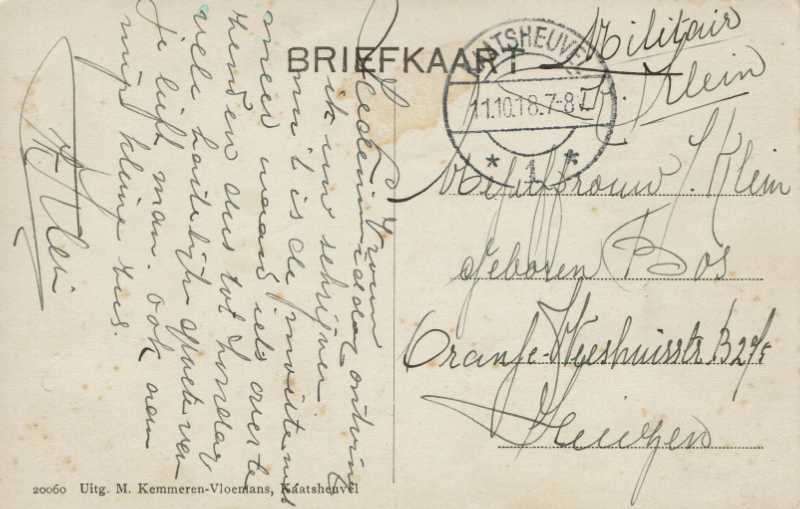 BRIEFKAART
KAATSHEUVEL
11.10.18.7-8
* 1 *
Militair
J. Klein
Mejufbrouw J. Klein
geboren Bos
Oranje-Weeshuisstr. B
Huizen
Vrouw
Hedenmiddag ontving
ik uw schrijven
is de
meer waard iets over te
en dus tot Zondag
vele hartelijk groete van
je lieft man. ook aan
mijn kleine zus.
Klein
20060 Uitg. M. Kemmeren-Vloemans, Kaatsheuvel